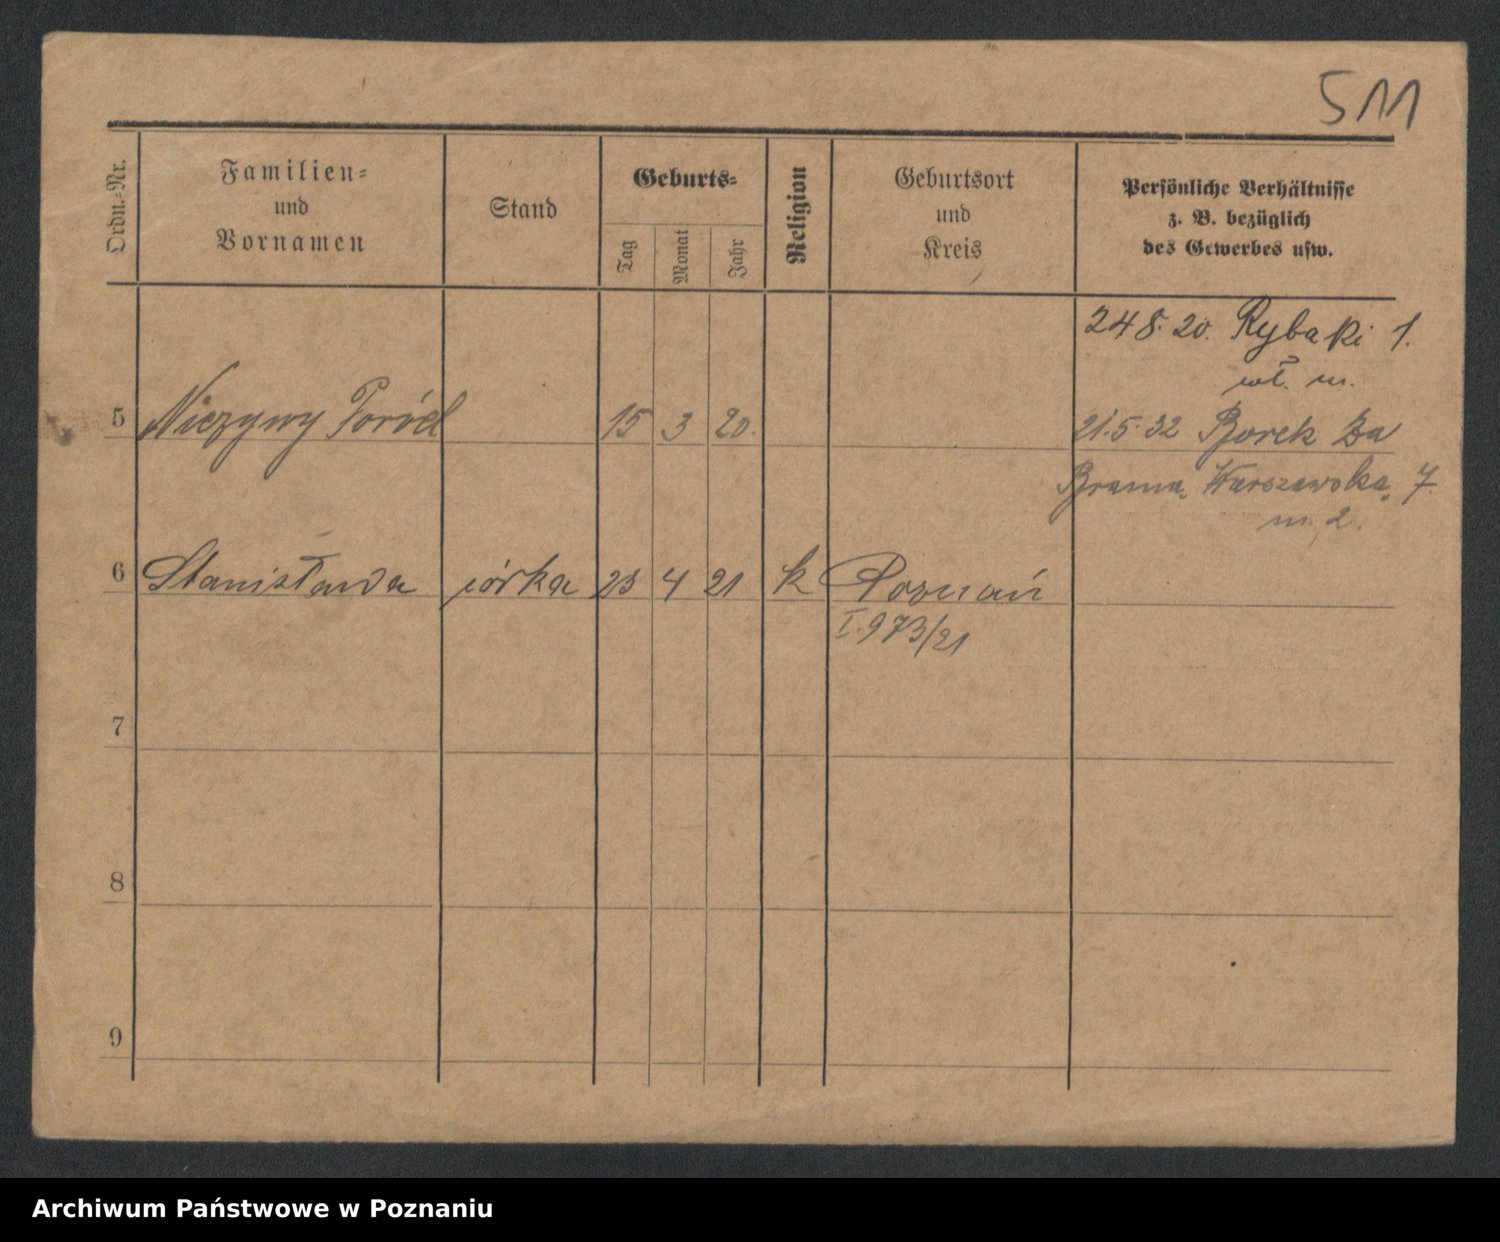 511
Ordn.-Nr.
Familien-
und
Vornamen
Stand
Geburts-
Tag
Monat
Jahr
Religion
Geburtsort
und
Kreis
Persönliche Verhältnisse
z. B. bezüglich
des Gewerbes usw.
24 8. 20. Rybaki 1.
wł. m.
5 Nieżywy Poród 15 3 20. 21.5.32 Borek Za
Brama „Warszawska„ 7.
m. 2.
6 Stanisława córka 23 4 21 k Poznań
I.973/21
7
8
9
Archiwum Państwowe w Poznaniu